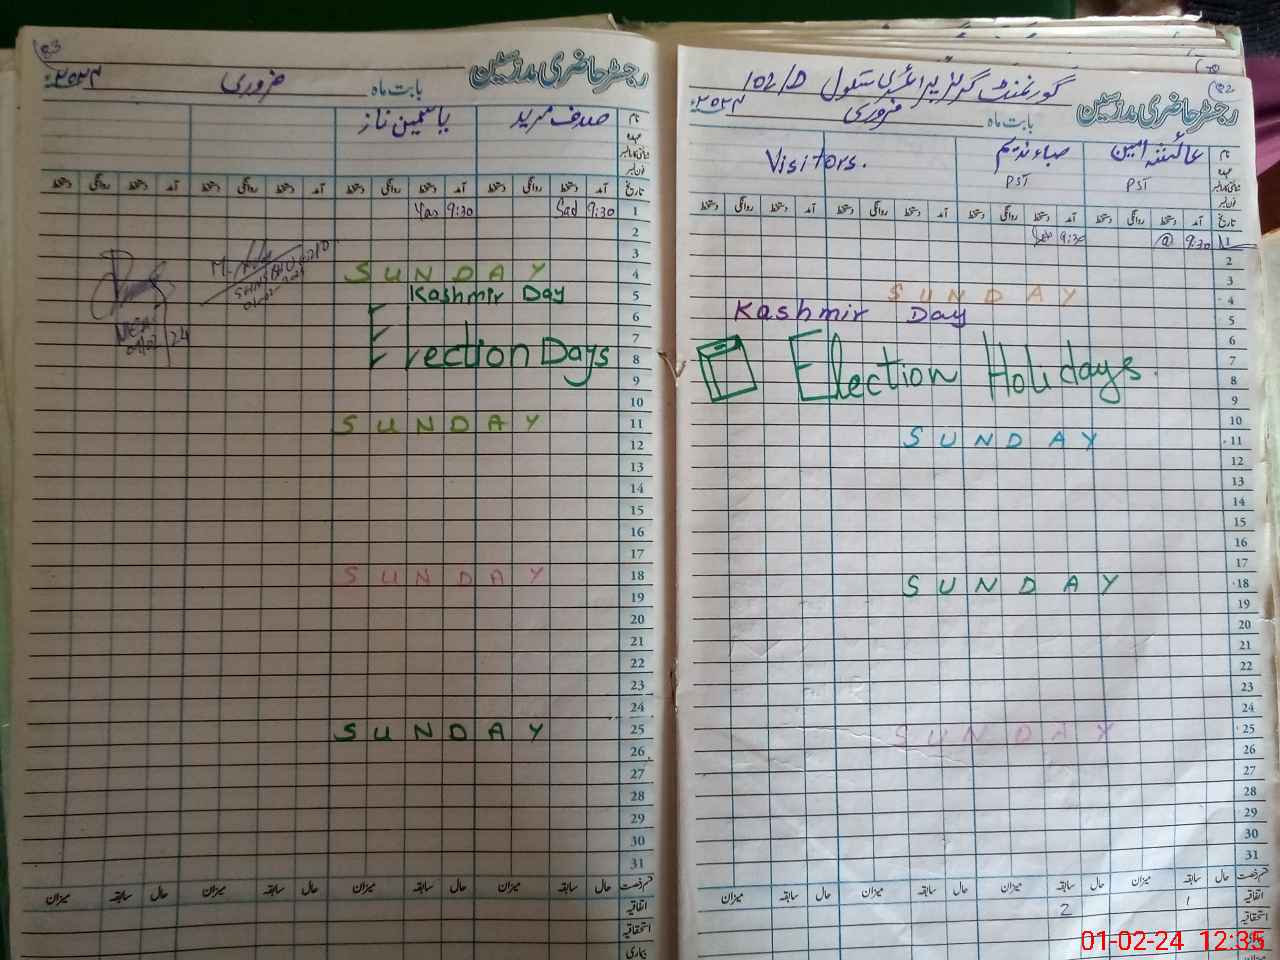 82
گورنمنٹ گرلز پرائمری سکول 102/D
رجسٹر حاضری مدرسین
بابت ماہ فروری ۲۰۲۴ء
نام عائشہ امین صباء ندیم Visitors.
عہدہ PST PST
تاریخ آمد دستخط روانگی دستخط آمد دستخط روانگی دستخط آمد دستخط روانگی دستخط آمد دستخط روانگی دستخط
1 9:30 @ 9:30
2
3
4 SUNDAY
5 Kashmir Day
6
7 Election Holidays.
8
9
10
11 SUNDAY
12
13
14
15
16
17
18 SUNDAY
19
20
21
22
23
24
25 SUNDAY
26
27
28
29
30
31
قسم رخصت حال سابقہ میزان حال سابقہ میزان حال سابقہ میزان حال سابقہ میزان
اتفاقیہ 1 2
استحقاقیہ
83
رجسٹر حاضری مدرسین
بابت ماہ فروری ۲۰۲۴ء
نام صدف مرید یاسمین ناز
عہدہ
تاریخ آمد دستخط روانگی دستخط آمد دستخط روانگی دستخط آمد دستخط روانگی دستخط آمد دستخط روانگی دستخط
1 9:30 Sad 9:30 Yas
2
3
4 SUNDAY
5 Kashmir Day
6
7
8 Election Days
9
10
11 SUNDAY
12
13
14
15
16
17
18 SUNDAY
19
20
21
22
23
24
25 SUNDAY
26
27
28
29
30
31
قسم رخصت حال سابقہ میزان حال سابقہ میزان حال سابقہ میزان حال سابقہ میزان
اتفاقیہ
استحقاقیہ
بیماری
01-02-24 12:35